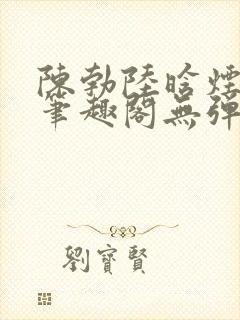 陳勃陸晗煙
筆趣閣無彈
劉寶賢